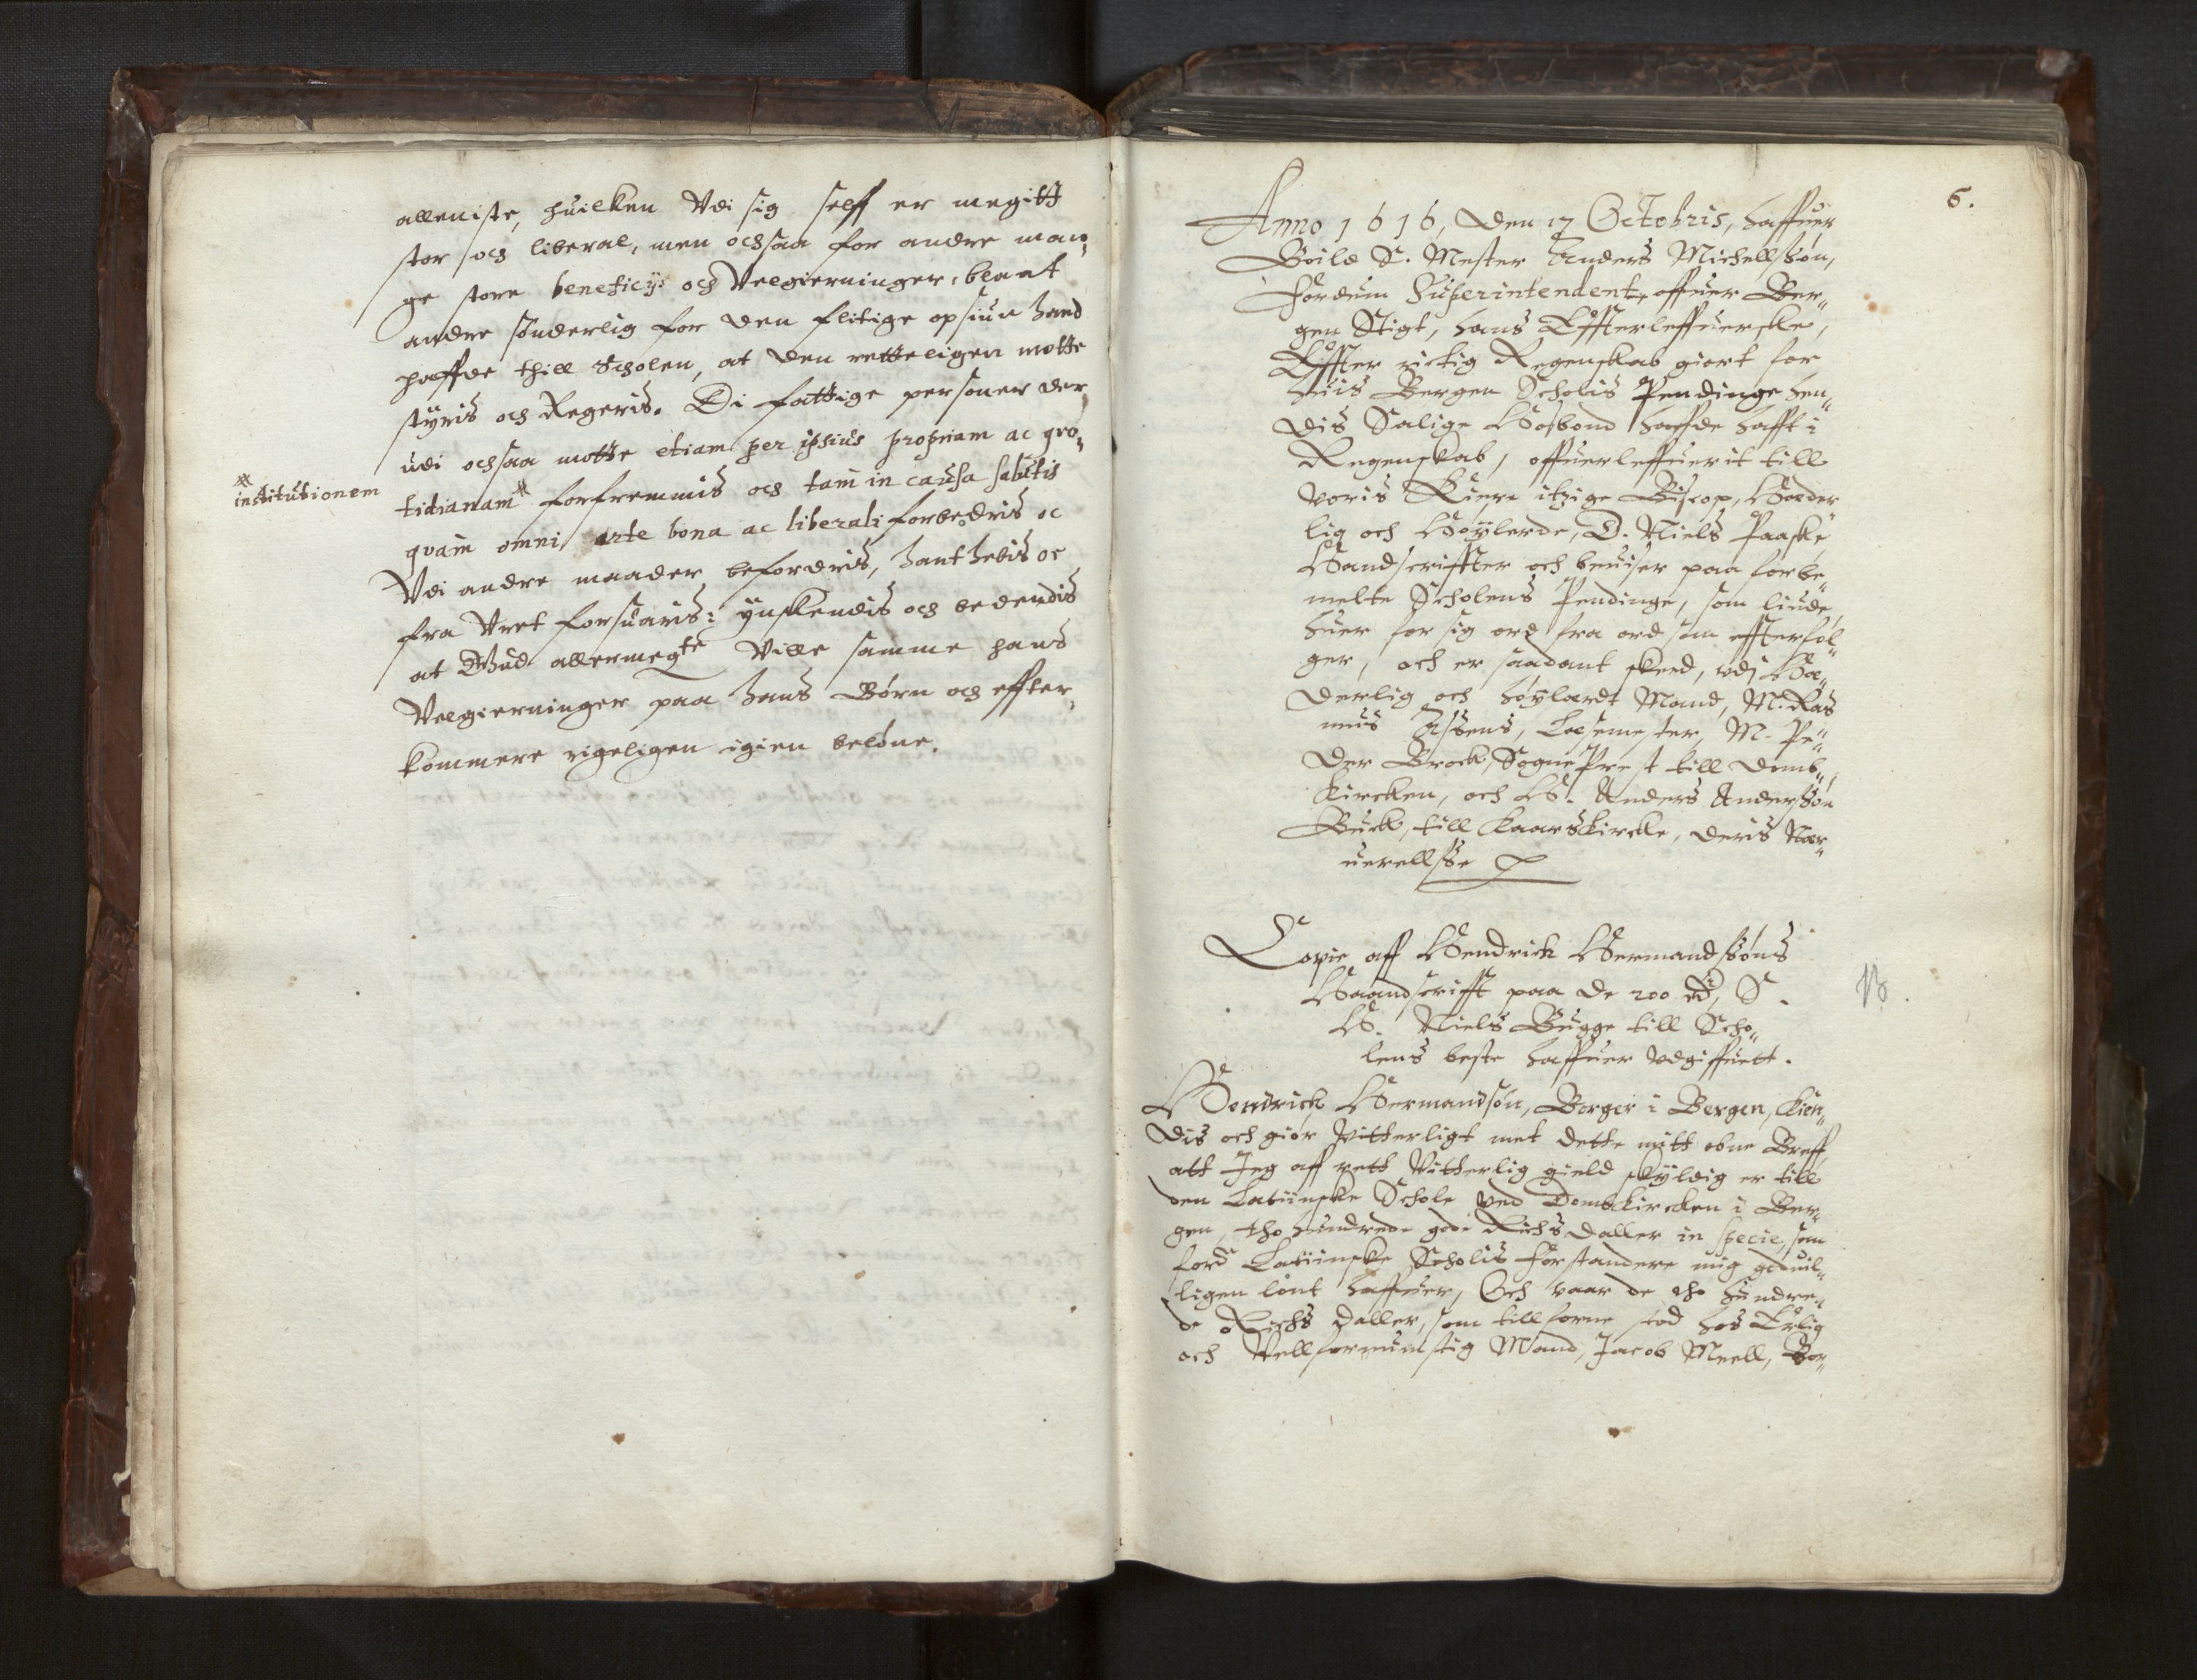 alleniste, huilken Vdi sig self er megitt
stor och liberal, men ochsaa for andre man¬
ge store beneficij och Velgierninger, blant
andre sønderlig for den flitige opsiun hand
haffde thill Scholen, at den retteligen motte
styris och Regeris. Di fattige personer der
udi ochsaa motte etiam per ipsius propriam ac quo¬
tidianam * forfremmis och tam in causa salutis
* institutionem
quam omni arte bona ac liberali forbedris oc
Vdi andre maader befordris, hanthebis oc
fra Vret forsuaris: ynskendis och bedendis
at Gud allermegte Ville samme hans
Velgierninger paa hans Børn och effter¬
kommere rigeligen igien beløne.
6.
Anno 1616, den 17 Octobris, haffuer
Boild S. Mester Anders Michellsøn,
fordum Superintendent offuer Ber¬
gen Stigt, hans Effterleffuerske,
Effter rictig Regenskab giort for
huis Bergen Scholis Pendinge hen¬
dis Salige Hosbond haffde hafft i
Regenskab, offuerleffuerit till
voris Kiere itzige Biscop, Hæder
lig och Høylerde, D. Niels Paaske
Handscriffter och beuiser paa forbe¬
melte Scholens Pendinge, som liude
huer for sig ord fra ord som effterføl¬
ger, och er saadant skeed, vdj Hæ¬
derlig och høylærdt Mand, M. Ras
mus Assens, Læsemester, M. Pe¬
der Brock, SognePrest till Domb¬
Kircken, och H. Anders Andersøn
Buck, till Kaarskircke, deris Nær¬
uerellsse
Copie aff Hendrick Hermandssøns
Haandscrifft paa de 200 rd, S.
NB.
H. Niels Bugge till Scho¬
lens beste haffuer vdgiffuett.
Hendrick Hermandsøn, Borger i Bergen, Kien¬
dis och giør Vitterligt met dette mitt obne Breff
att Jeg aff rett Vitterlig gield skyldig er till
den Latinske Schole ved Domkircken i Ber¬
gen, tho hundrede gode Richs Daller in specie, som
ford Latinske Scholis forstandere mig goduil¬
ligen lont haffuer, Och vaar de tho hundre¬
de Richs Daller, som till forne stod hos Erlig
och Vellfornumstig Mand, Jacob Meell, Bor¬